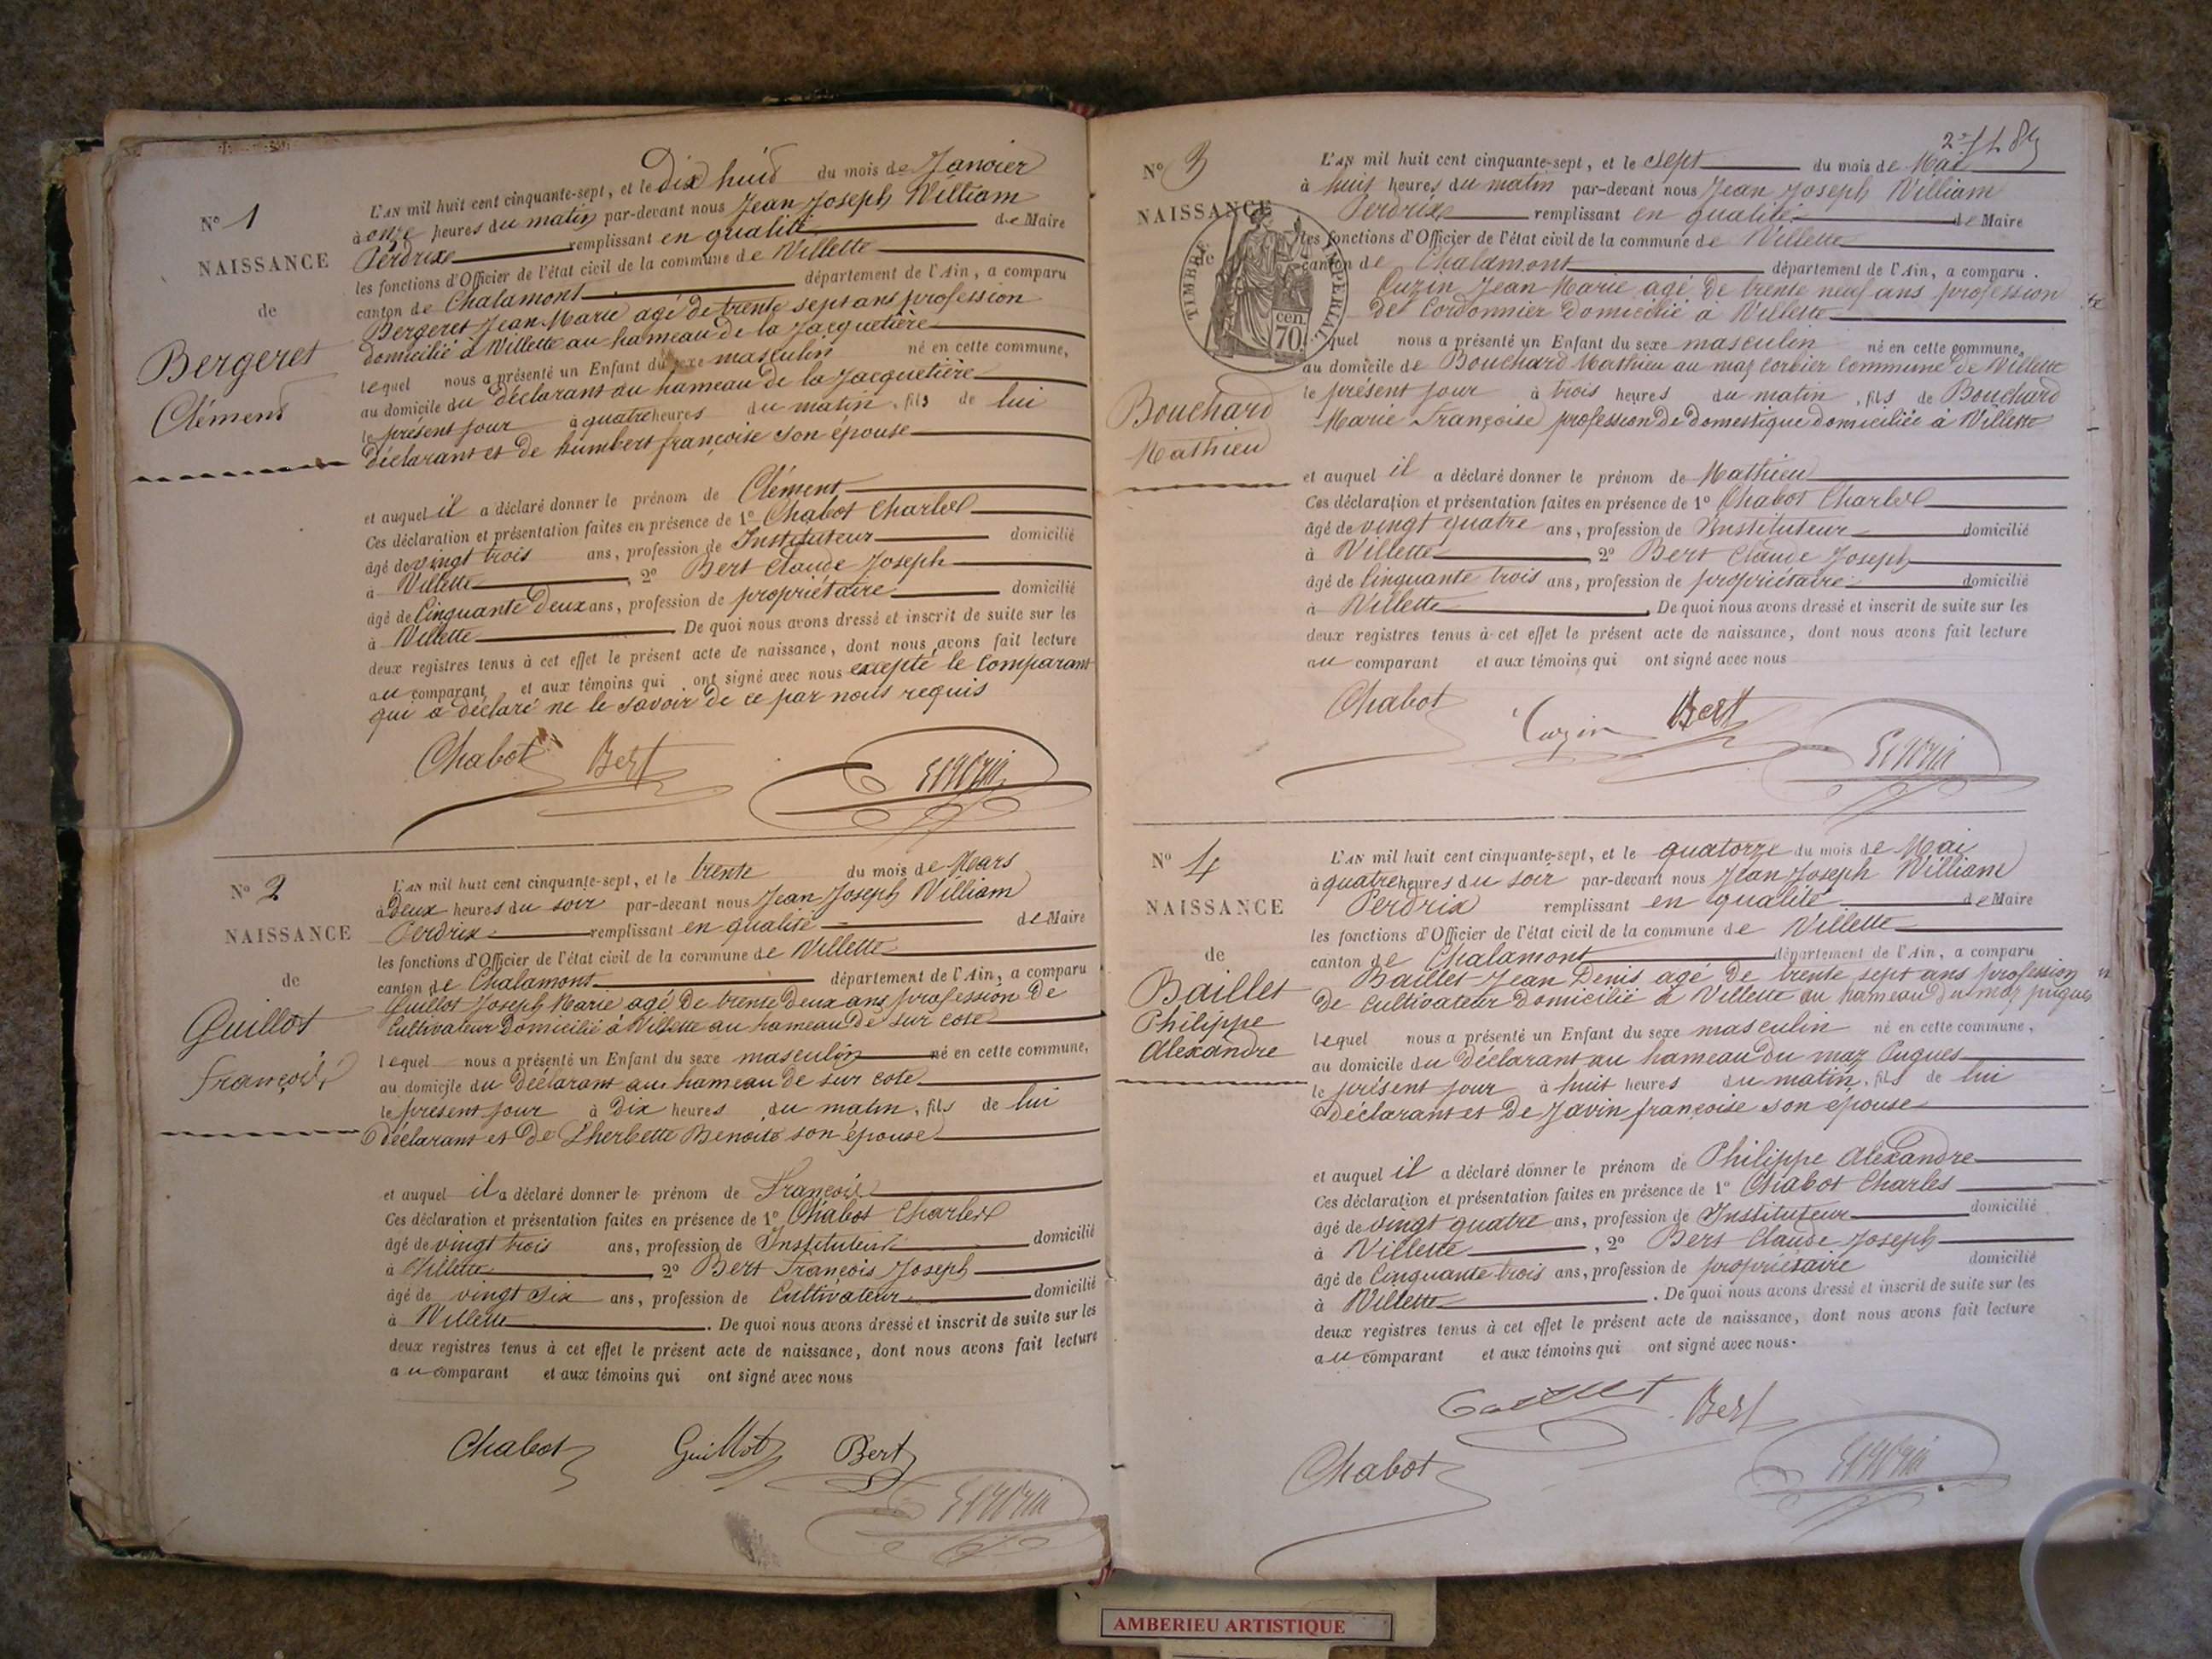 N° 1
NAISSANCE
de
Bergeret
Clément
L'AN mil huit cent cinquante-sept, et le Dix huit du mois de Janvier
à onze heures du matin par-devant nous Jean Joseph William
Perdrix remplissant en qualité de Maire
les fonctions d'Officier de l'état civil de la commune de Villette
canton de Chalamont département de l'Ain, a comparu
Bergeret Jean Marie agé de trente sept ans profession
domicilié à Villette au hameau de la Jacquetière
lequel nous a présenté un Enfant du sexe masculin né en cette commune,
au domicile du déclarant au hameau de la Jacquetière
le présent jour à quatre heures du matin, fils de lui
déclarant et de humbert françoise son épouse
et auquel il a déclaré donner le prénom de Clément
Ces déclaration et présentation faites en présence de 1° Chabot Charles
âgé de vingt trois ans, profession de Instituteur domicilié
à Villette, 2° Bert Claude Joseph
âgé de Cinquante deux ans, profession de propriétaire domicilié
à Villette. De quoi nous avons dressé et inscrit de suite sur les
deux registres tenus à cet effet le présent acte de naissance, dont nous avons fait lecture
au comparant et aux témoins qui ont signé avec nous excepté le Comparant
qui a déclaré ne le savoir de ce par nous requis
Chabot Bert
N° 2
NAISSANCE
de
Guillot
François
L'AN mil huit cent cinquante-sept, et le trente du mois de Mars
à Deux heures du soir par-devant nous Jean Joseph William
Perdrix remplissant en qualité de Maire
les fonctions d'Officier de l'état civil de la commune de Villette
canton de Chalamont département de l'Ain, a comparu
Guillot Joseph Marie agé De trente Deux ans profession De
Cultivateur Domicilié à Villette au hameau De sur cote
lequel nous a présenté un Enfant du sexe masculin né en cette commune,
au domicile du Déclarant au hameau de sur cote
le présent jour à Dix heures du matin, fils de lui
déclarant et De Lherbette Benoite son épouse
et auquel il a déclaré donner le prénom de François
Ces déclaration et présentation faites en présence de 1° Chabot Charles
âgé de vingt trois ans, profession de Instituteur domicilié
à Villette 2° Bert François Joseph
âgé de vingt six ans, profession de Cultivateur domicilié
à Villette. De quoi nous avons dressé et inscrit de suite sur les
deux registres tenus à cet effet le présent acte de naissance, dont nous avons fait lecture
au comparant et aux témoins qui ont signé avec nous
Chabot Guillot Bert
N° 3
NAISSANCE
de
TIMBRE IMPERIAL
cen. 70
Bouchard
Mathieu
L'AN mil huit cent cinquante-sept, et le sept du mois de Mai
à huit heures du matin par-devant nous Jean Joseph William
Perdrix remplissant en qualité de Maire
les fonctions d'Officier de l'état civil de la commune de Villette
canton de Chalamont département de l'Ain, a comparu.
Cuzin Jean Marie agé De trente neuf ans profession
De Cordonnier Domicilié à Villette
lequel nous a présenté un Enfant du sexe masculin né en cette commune,
au domicile de Bouchard Mathieu au maz Corbier Commune De Villette
le présent jour à trois heures du matin, fils de Bouchard
Marie Françoise profession De Domestique domiciliée à Villette
et auquel il a déclaré donner le prénom de Mathieu
Ces déclaration et présentation faites en présence de 1° Chabot Charles
âgé de vingt quatre ans, profession de Instituteur domicilié
à Villette 2° Bert Claude Joseph
âgé de Cinquante trois ans, profession de propriétaire domicilié
à Villette. De quoi nous avons dressé et inscrit de suite sur les
deux registres tenus à cet effet le présent acte de naissance, dont nous avons fait lecture
au comparant et aux témoins qui ont signé avec nous
Chabot Cuzin Bert
N° 4
NAISSANCE
de
Baillet
Philippe
Alexandre
L'AN mil huit cent cinquante-sept, et le quatorze du mois de Mai
à quatre heures du soir par-devant nous Jean Joseph William
Perdrix remplissant en qualité de Maire
les fonctions d'Officier de l'état civil de la commune de Villette
canton de Chalamont département de l'Ain, a comparu
Baillet Jean Denis agé De trente sept ans profession
De Cultivateur Domicilié à Villette au hameau Du maz pugues
lequel nous a présenté un Enfant du sexe masculin né en cette commune,
au domicile du Déclarant au hameau Du maz Pugues
le présent jour à huit heures du matin, fils de lui
déclarant et De Javin françoise son épouse
et auquel il a déclaré donner le prénom de Philippe Alexandre
Ces déclaration et présentation faites en présence de 1° Chabot Charles
âgé de vingt quatre ans, profession de Instituteur domicilié
à Villette, 2° Bert Claude Joseph
âgé de Cinquante trois ans, profession de propriétaire domicilié
à Villette. De quoi nous avons dressé et inscrit de suite sur les
deux registres tenus à cet effet le présent acte de naissance, dont nous avons fait lecture
au comparant et aux témoins qui ont signé avec nous.
Baillet Bert
Chabot
AMBERIEU ARTISTIQUE